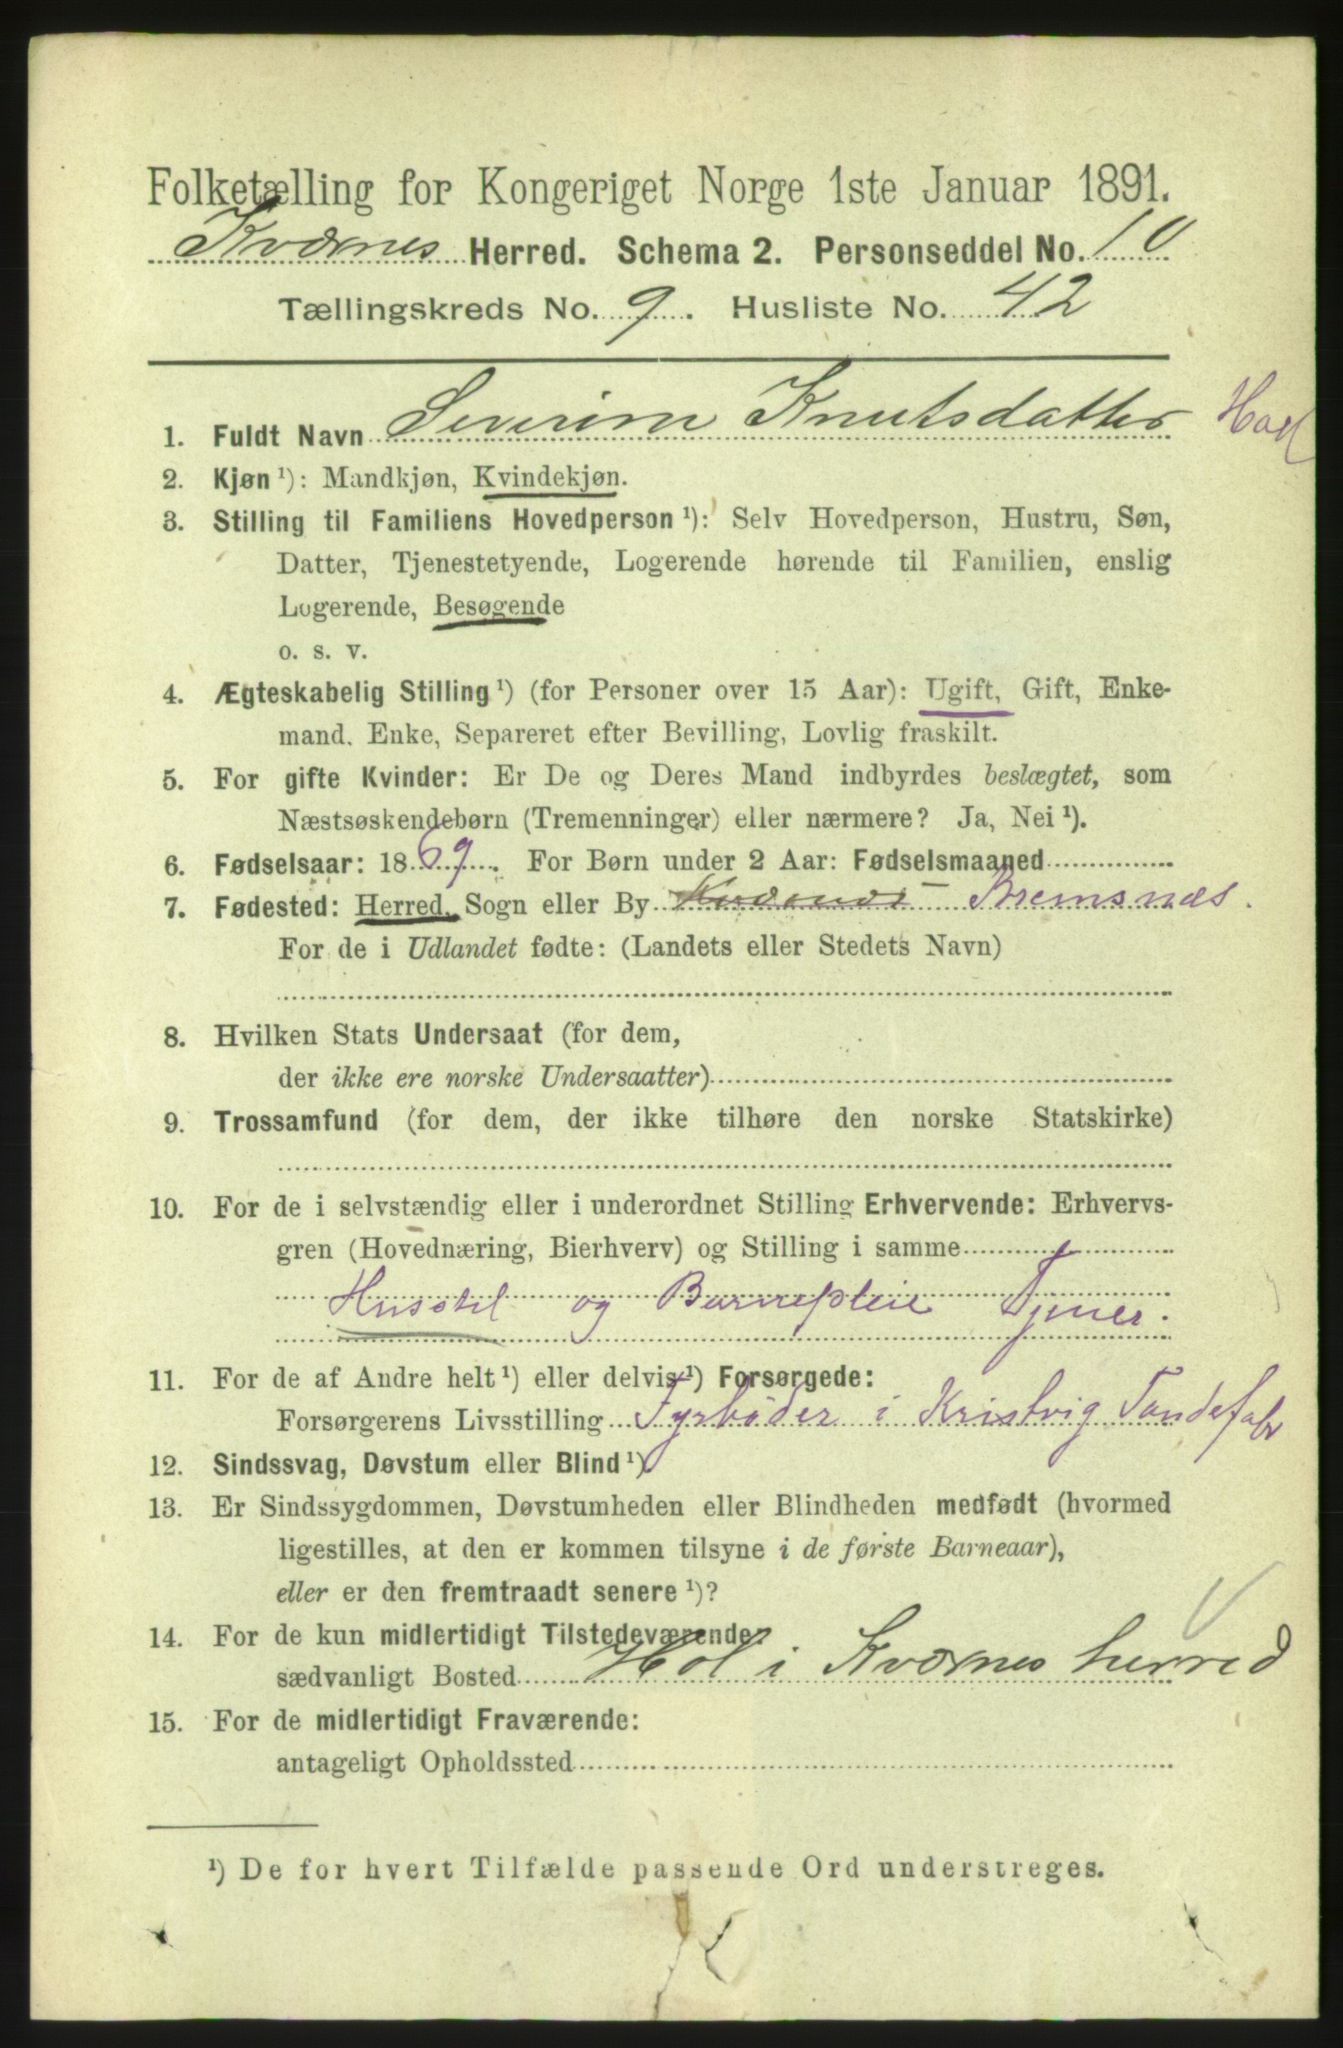 Folketælling for Kongeriget Norge 1ste Januar 1891.
Kværnes Herred. Schema 2. Personseddel No. 10
Tællingskreds No. 9. Husliste No. 42
1. Fuldt Navn Severine Knutsdatter
2. Kjøn ¹): Mandkjøn, Kvindekjøn.
3. Stilling til Familiens Hovedperson ¹): Selv Hovedperson, Hustru, Søn,
Datter, Tjenestetyende, Logerende hørende til Familien, enslig
Logerende, Besøgende
o. s. v.
4. Ægteskabelig Stilling ¹) (for Personer over 15 Aar): Ugift, Gift, Enke-
mand, Enke, Separeret efter Bevilling, Lovlig fraskilt.
5. For gifte Kvinder: Er De og Deres Mand indbyrdes beslægtet, som
Næstsøskendebørn (Tremenninger) eller nærmere? Ja, Nei ¹).
6. Fødselsaar: 1869. For Børn under 2 Aar: Fødselsmaaned
7. Fødested: Herred, Sogn eller By Kværnes Bremsnes.
For de i Udlandet fødte: (Landets eller Stedets Navn)
8. Hvilken Stats Undersaat (for dem,
der ikke ere norske Undersaatter)
9. Trossamfund (for dem, der ikke tilhøre den norske Statskirke)
10. For de i selvstændig eller i underordnet Stilling Erhvervende: Erhvervs-
gren (Hovednæring, Bierhverv) og Stilling i samme
Husstel og Barnepleie Tjener.
11. For de af Andre helt ¹) eller delvis ¹) Forsørgede:
Forsørgerens Livsstilling Fyrbøder i Kristvig Tøndefabr
12. Sindssvag, Døvstum eller Blind ¹)
13. Er Sindssygdommen, Døvstumheden eller Blindheden medfødt (hvormed
ligestilles, at den er kommen tilsyne i de første Barneaar),
eller er den fremtraadt senere ¹)?
14. For de kun midlertidigt Tilstedeværende:
sædvanligt Bosted Hol i Kværnes herred
15. For de midlertidigt Fraværende:
antageligt Opholdssted
¹) De for hvert Tilfælde passende Ord understreges.